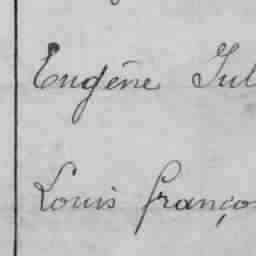 Eugène Jul
Louis franço